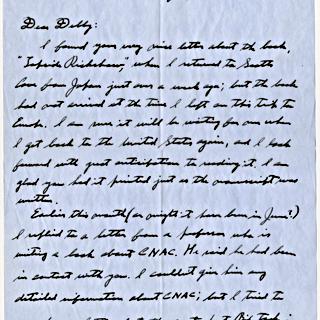 Dear Debby:
I found your very nice letter about the book,
"Topside Rickshaw," when I returned to South
Cove from Japan just over a week ago; but the book
had not arrived at the time I left on this trip to
Europe. I am sure it will be waiting for me when
I get back to the United States again, and I look
forward with great anticipation to reading it. I am
glad you had it printed just as the manuscript was
written.
Earlier this month (or might it have been in June?)
I replied to a letter from a person who is
writing a book about CNAC. He said he had been
in contact with you. I couldn't give him any
detailed information about CNAC; but I tried to